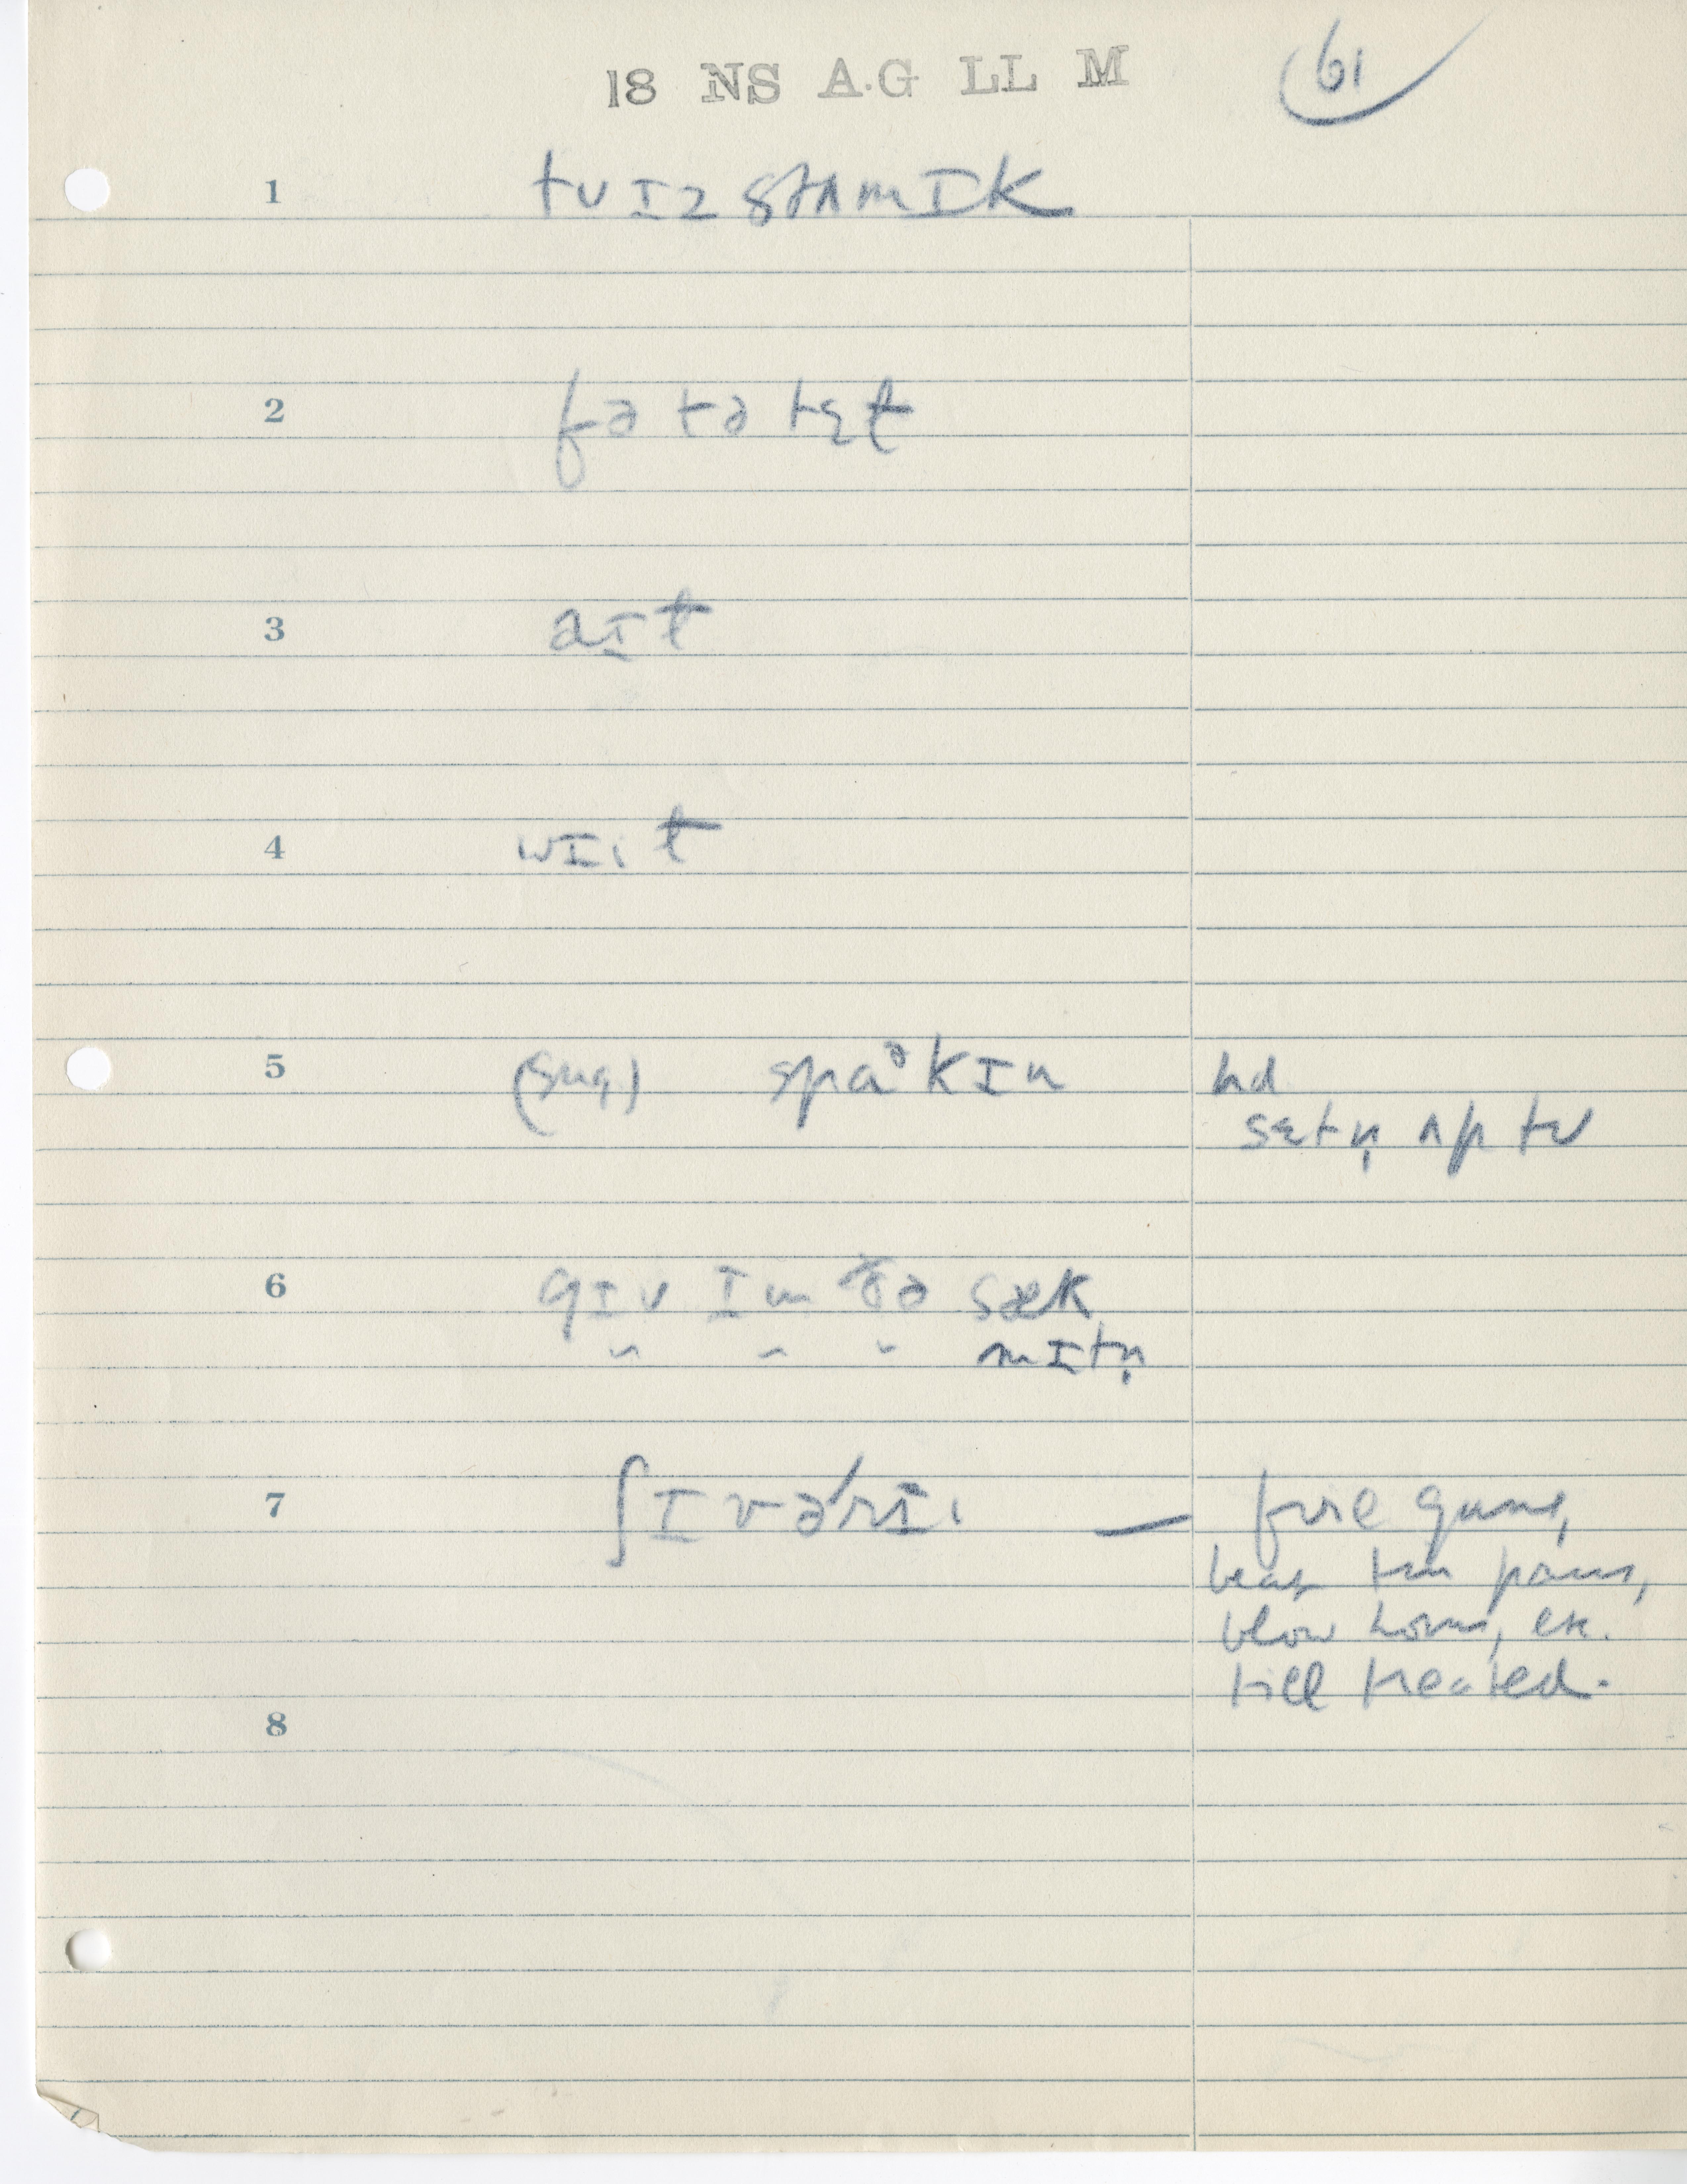 18 NS A.G LL M
61
1 tʊ ɪz stʌmɪk
2 fə tə tɛt
3 aɪt
4 wɪi t
5 (sug) spaᵊkɪn hd
sɛtn̩ ʌp tʊ
6 gɪv ɪm ðə sæk
〃 〃 〃 mɪtn̩
7 ʃɪvərɪi — fire guns,
beat tin pans,
blow horns, etc.
till treated.
8